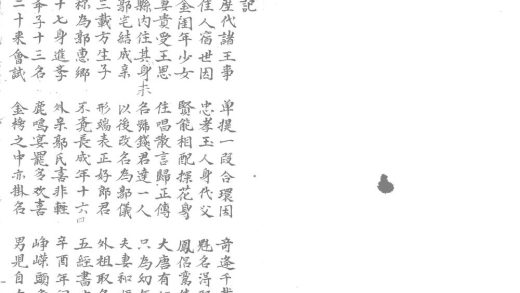 記
歷代諸王事 单提一段合環因 奇逢千
佳人宿世因 忠孝王人身代父 魁名得
金閨年少女 賢能相配探花身 鳳侶鸞
妻貴受王恩 住唱散言歸正傳 大唐有
縣內住其身未 名號錢君達一人 只為幼
郭宅結成亲 以後改名為郭儀 夫妻和
三載方生子 形端表正好郎君 外祖取
称為郭惠鄉 不竟長成年十六 五經書
十七身進 外亲郭氏喜非軽 辛酉年
子十三名 鹿鳴宴罷多欢喜 峥嵘
二十來會試 金榜之中亦掛名 男児自